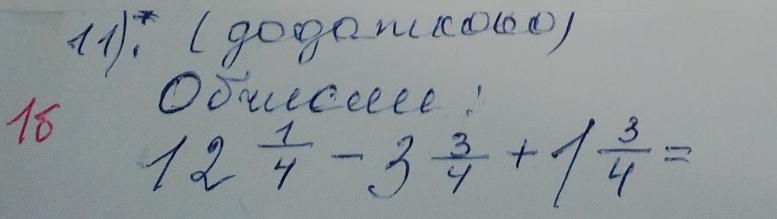 11).* (додатково)
1б Обчисли:
12 1/4 - 3 3/4 + 1 3/4 =